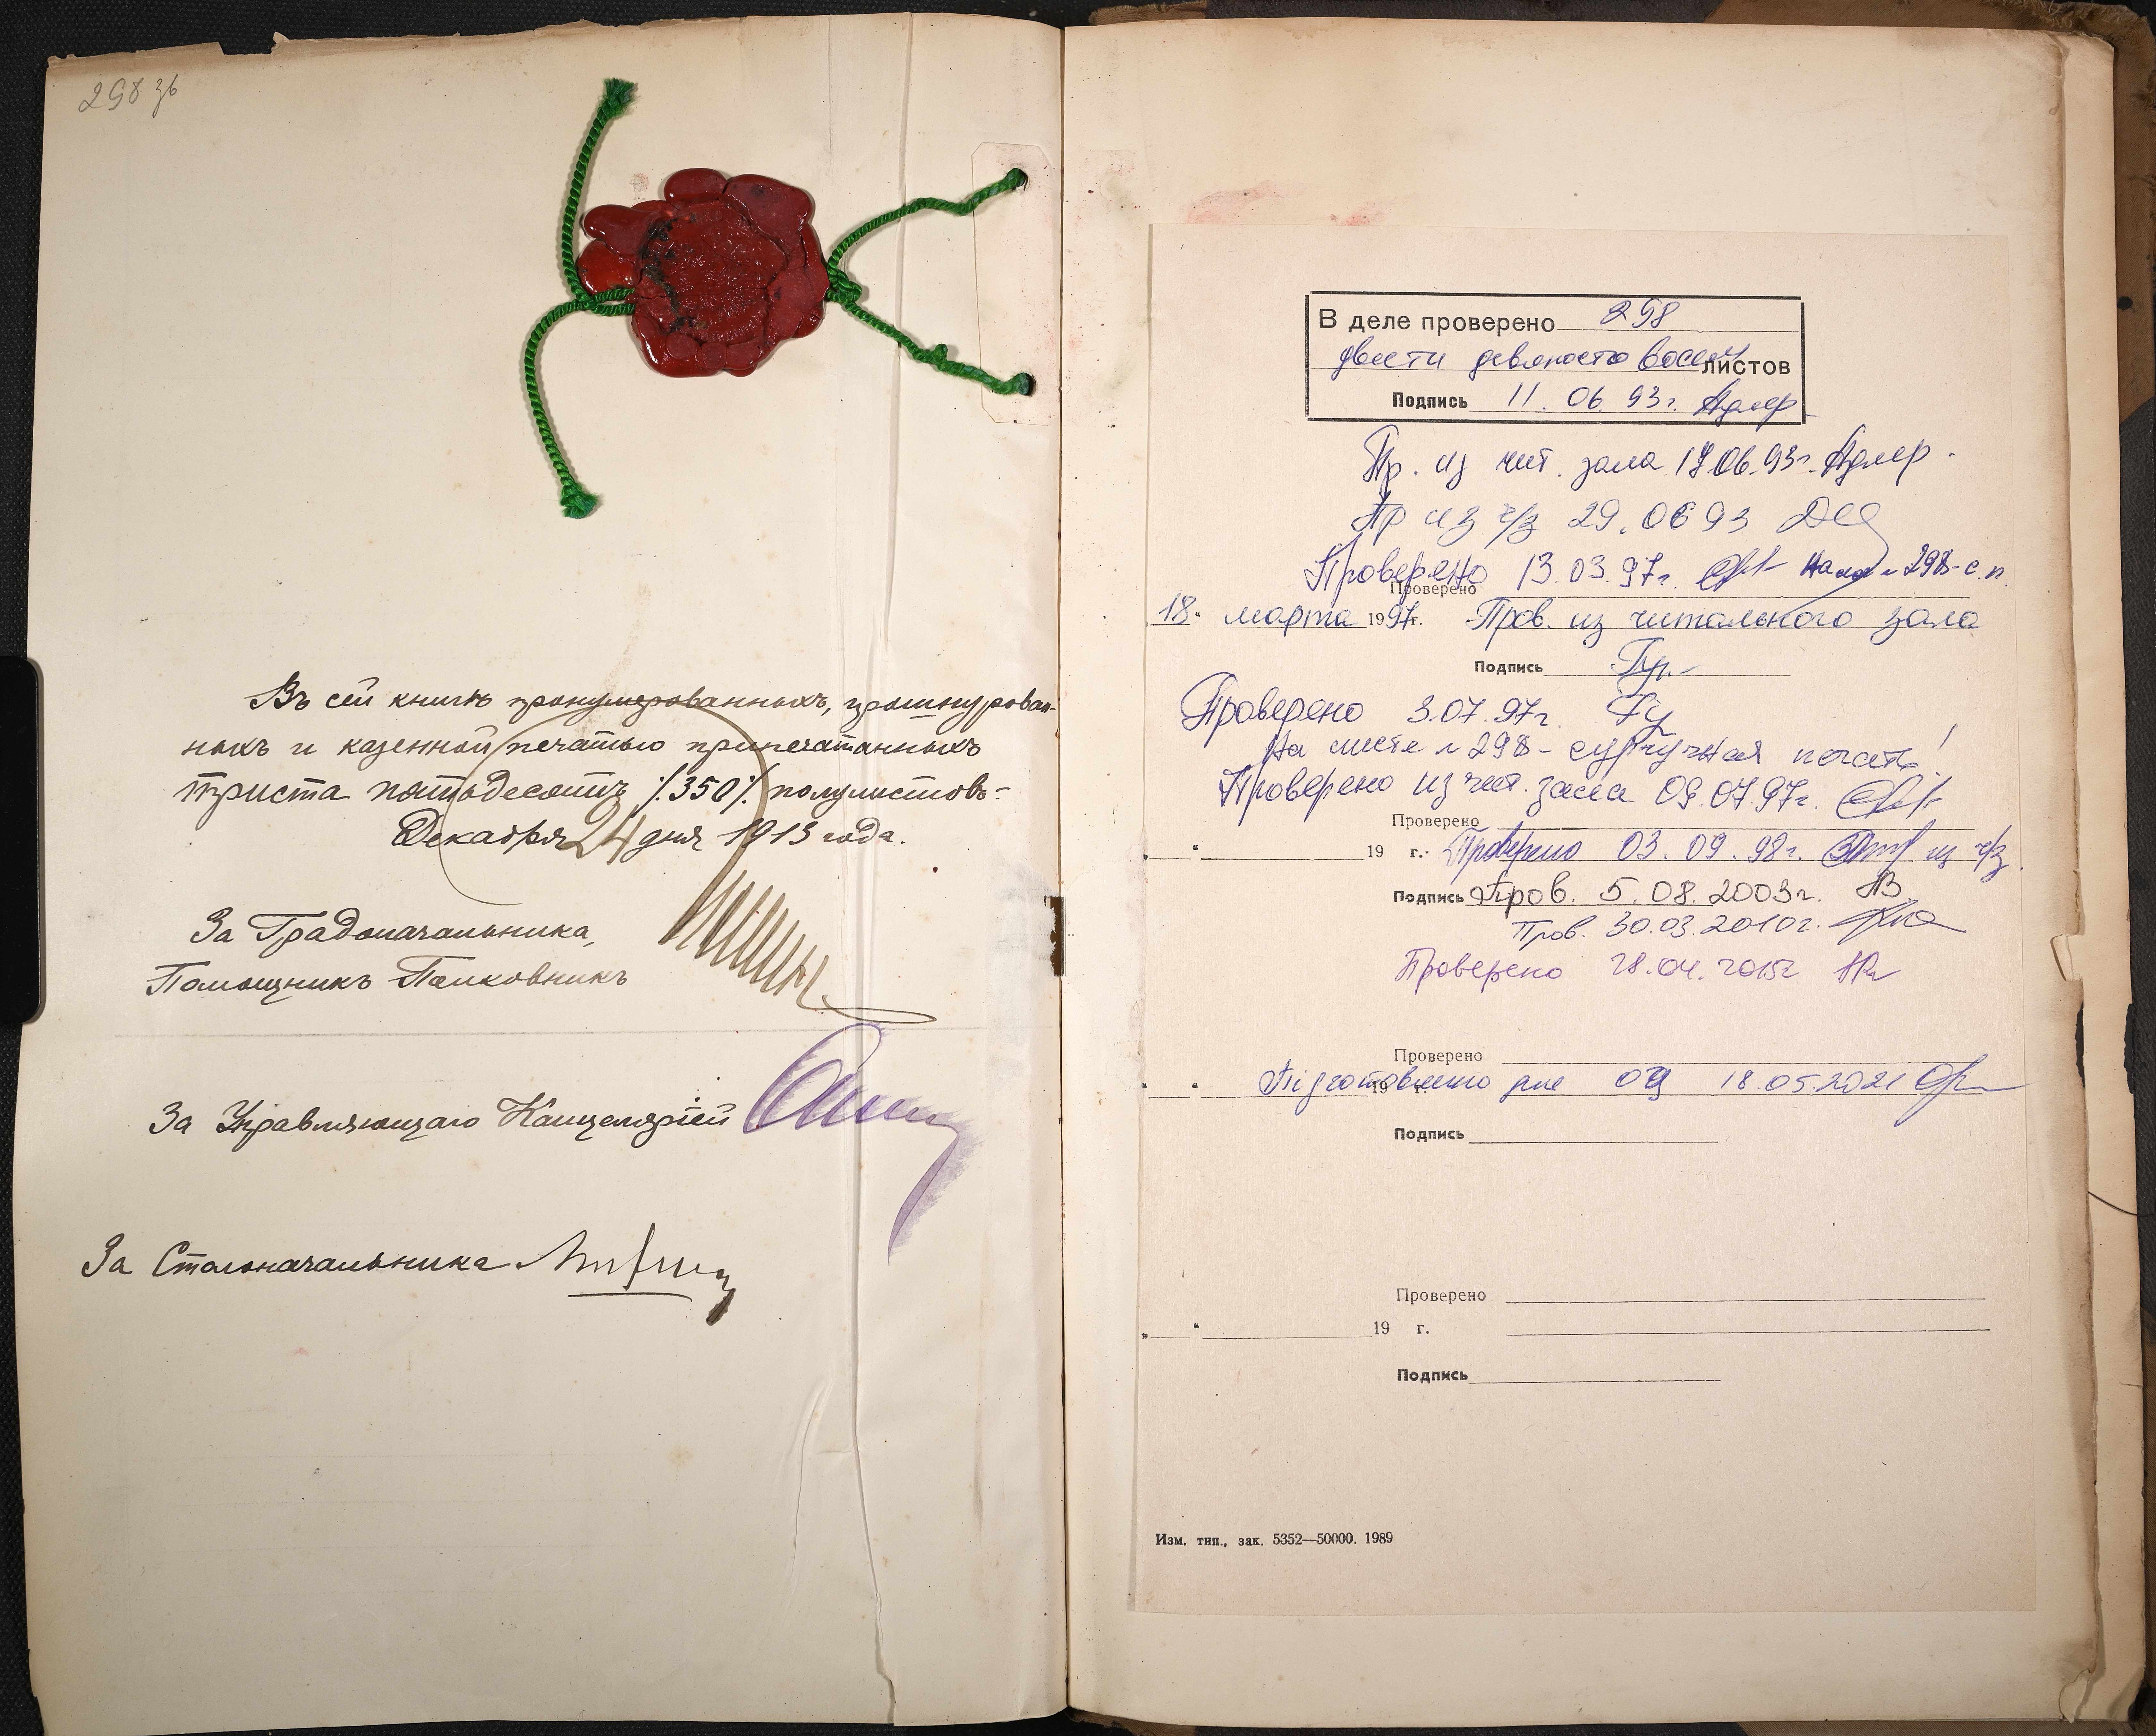 298 зв
Въ сей книгѣ пронумерованныхъ, прошнурован-
ныхъ и казенной печатью припечатанныхъ
триста пятьдесятъ ⁒350⁒ полулистовъ-
Декабря 24 дня 1913 года.
За Градоначальника,
Помощникъ Полковникъ
За Управляющаго Канцеляріей
За Столоначальника
В деле проверено 298
двести девяносто восемь листов
Подпись 11.06.93г. Адлер
Пр. из чит. зала 17.06.93г. Адлер.
Пр из ч/з 29.06 93
Проверено 13.03.97г. На л. 298-с.п.
Проверено
18 " марта 1997г. Пров. из читального зала
Подпись
Проверено 3.07.97г.
На листе № 298 - сургучная печать!
Проверено из чит. зала 09.07.97г.
Проверено
" " 19 г. Проверено 03.09.98г. из ч/з
Подпись Пров. 5.08.2003г.
Пров. 30.03.2010г.
Проверено 28.04.2015г
Проверено
" " 19 г. Підготовлено для ОЦ 18.05.2021
Подпись
Проверено
" " 19 г.
Подпись
Изм. тип., зак. 5352—50000. 1989